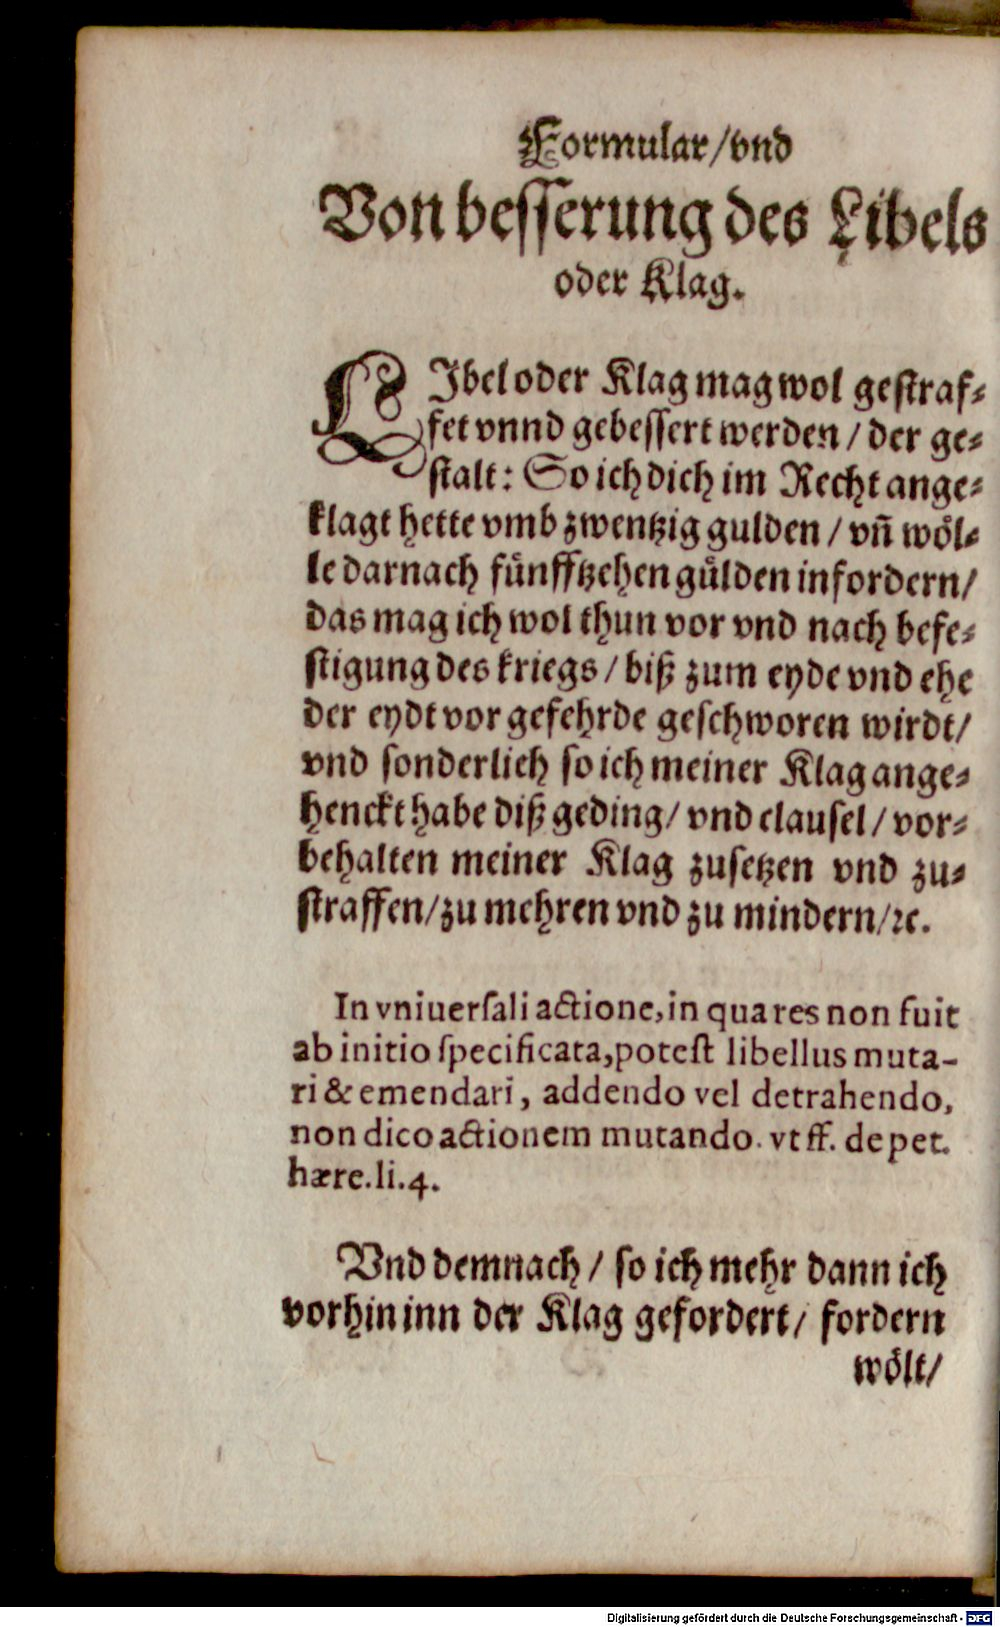 Formular/vnd
Von besserung des Libels
oder Klag.
LIbel oder Klag mag wol gestraf⸗
fet vnnd gebessert werden / der ge⸗
stalt: So ich dich im Recht ange⸗
klagt hette vmb zwentzig gulden / vn̄ wöl⸗
le darnach fünfftzehen gülden infordern/
das mag ich wol thun vor vnd nach befe⸗
stigung des kriegs / biß zum eyde vnd ehe
der eydt vor gefehrde geschworen wirdt/
vnd sonderlich so ich meiner Klag ange⸗
henckt habe diß geding/ vnd clausel / vor⸗
behalten meiner Klag zusetzen vnd zu⸗
straffen/zu mehren vnd zu mindern/ꝛc.
In vniuersali actione, in qua res non fuit
ab initio specificata, potest libellus muta-
ri & emendari, addendo vel detrahendo,
non dico actionem mutando. vt ff. de pet.
hære. li. 4.
Vnd demnach / so ich mehr dann ich
vorhin inn der Klag gefordert/ fordern
wölt/
Digitalisierung gefördert durch die Deutsche Forschungsgemeinschaft - DFG